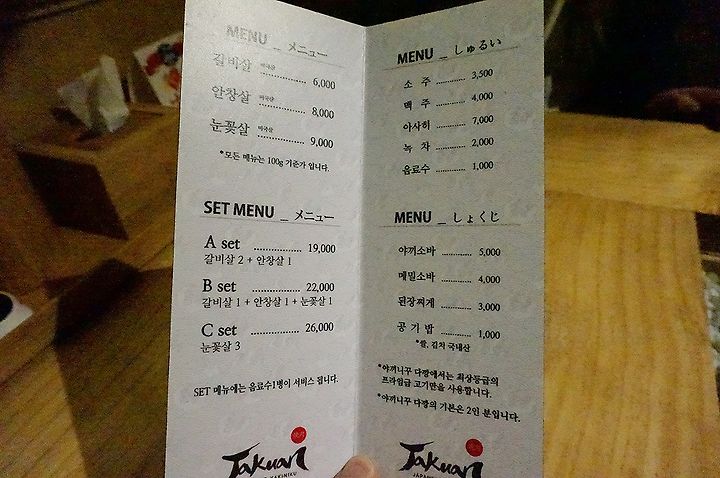 MENU _ メニュー
갈비살 미국산 6,000
안창살 미국산 8,000
눈꽃살 미국산 9,000
*모든 메뉴는 100g 기준가 입니다.
SET MENU _ メニュー
A set 19,000
갈비살 2 + 안창살 1
B set 22,000
갈비살 1 + 안창살 1 + 눈꽃살 1
C set 26,000
눈꽃살 3
SET 메뉴에는 음료수1병이 서비스 됩니다.
Takuan
YAKINIKU
MENU _ しゅるい
소 주 3,500
맥 주 4,000
아사히 7,000
녹 차 2,000
음료수 1,000
MENU _ しょくじ
야끼소바 5,000
메밀소바 4,000
된장찌개 3,000
공 기 밥 1,000
*쌀, 김치 국내산
*야끼니꾸 다깡에서는 최상등급의
프라임급 고기만을 사용합니다.
*야끼니꾸 다깡의 기본은 2인 분입니다.
Takuan